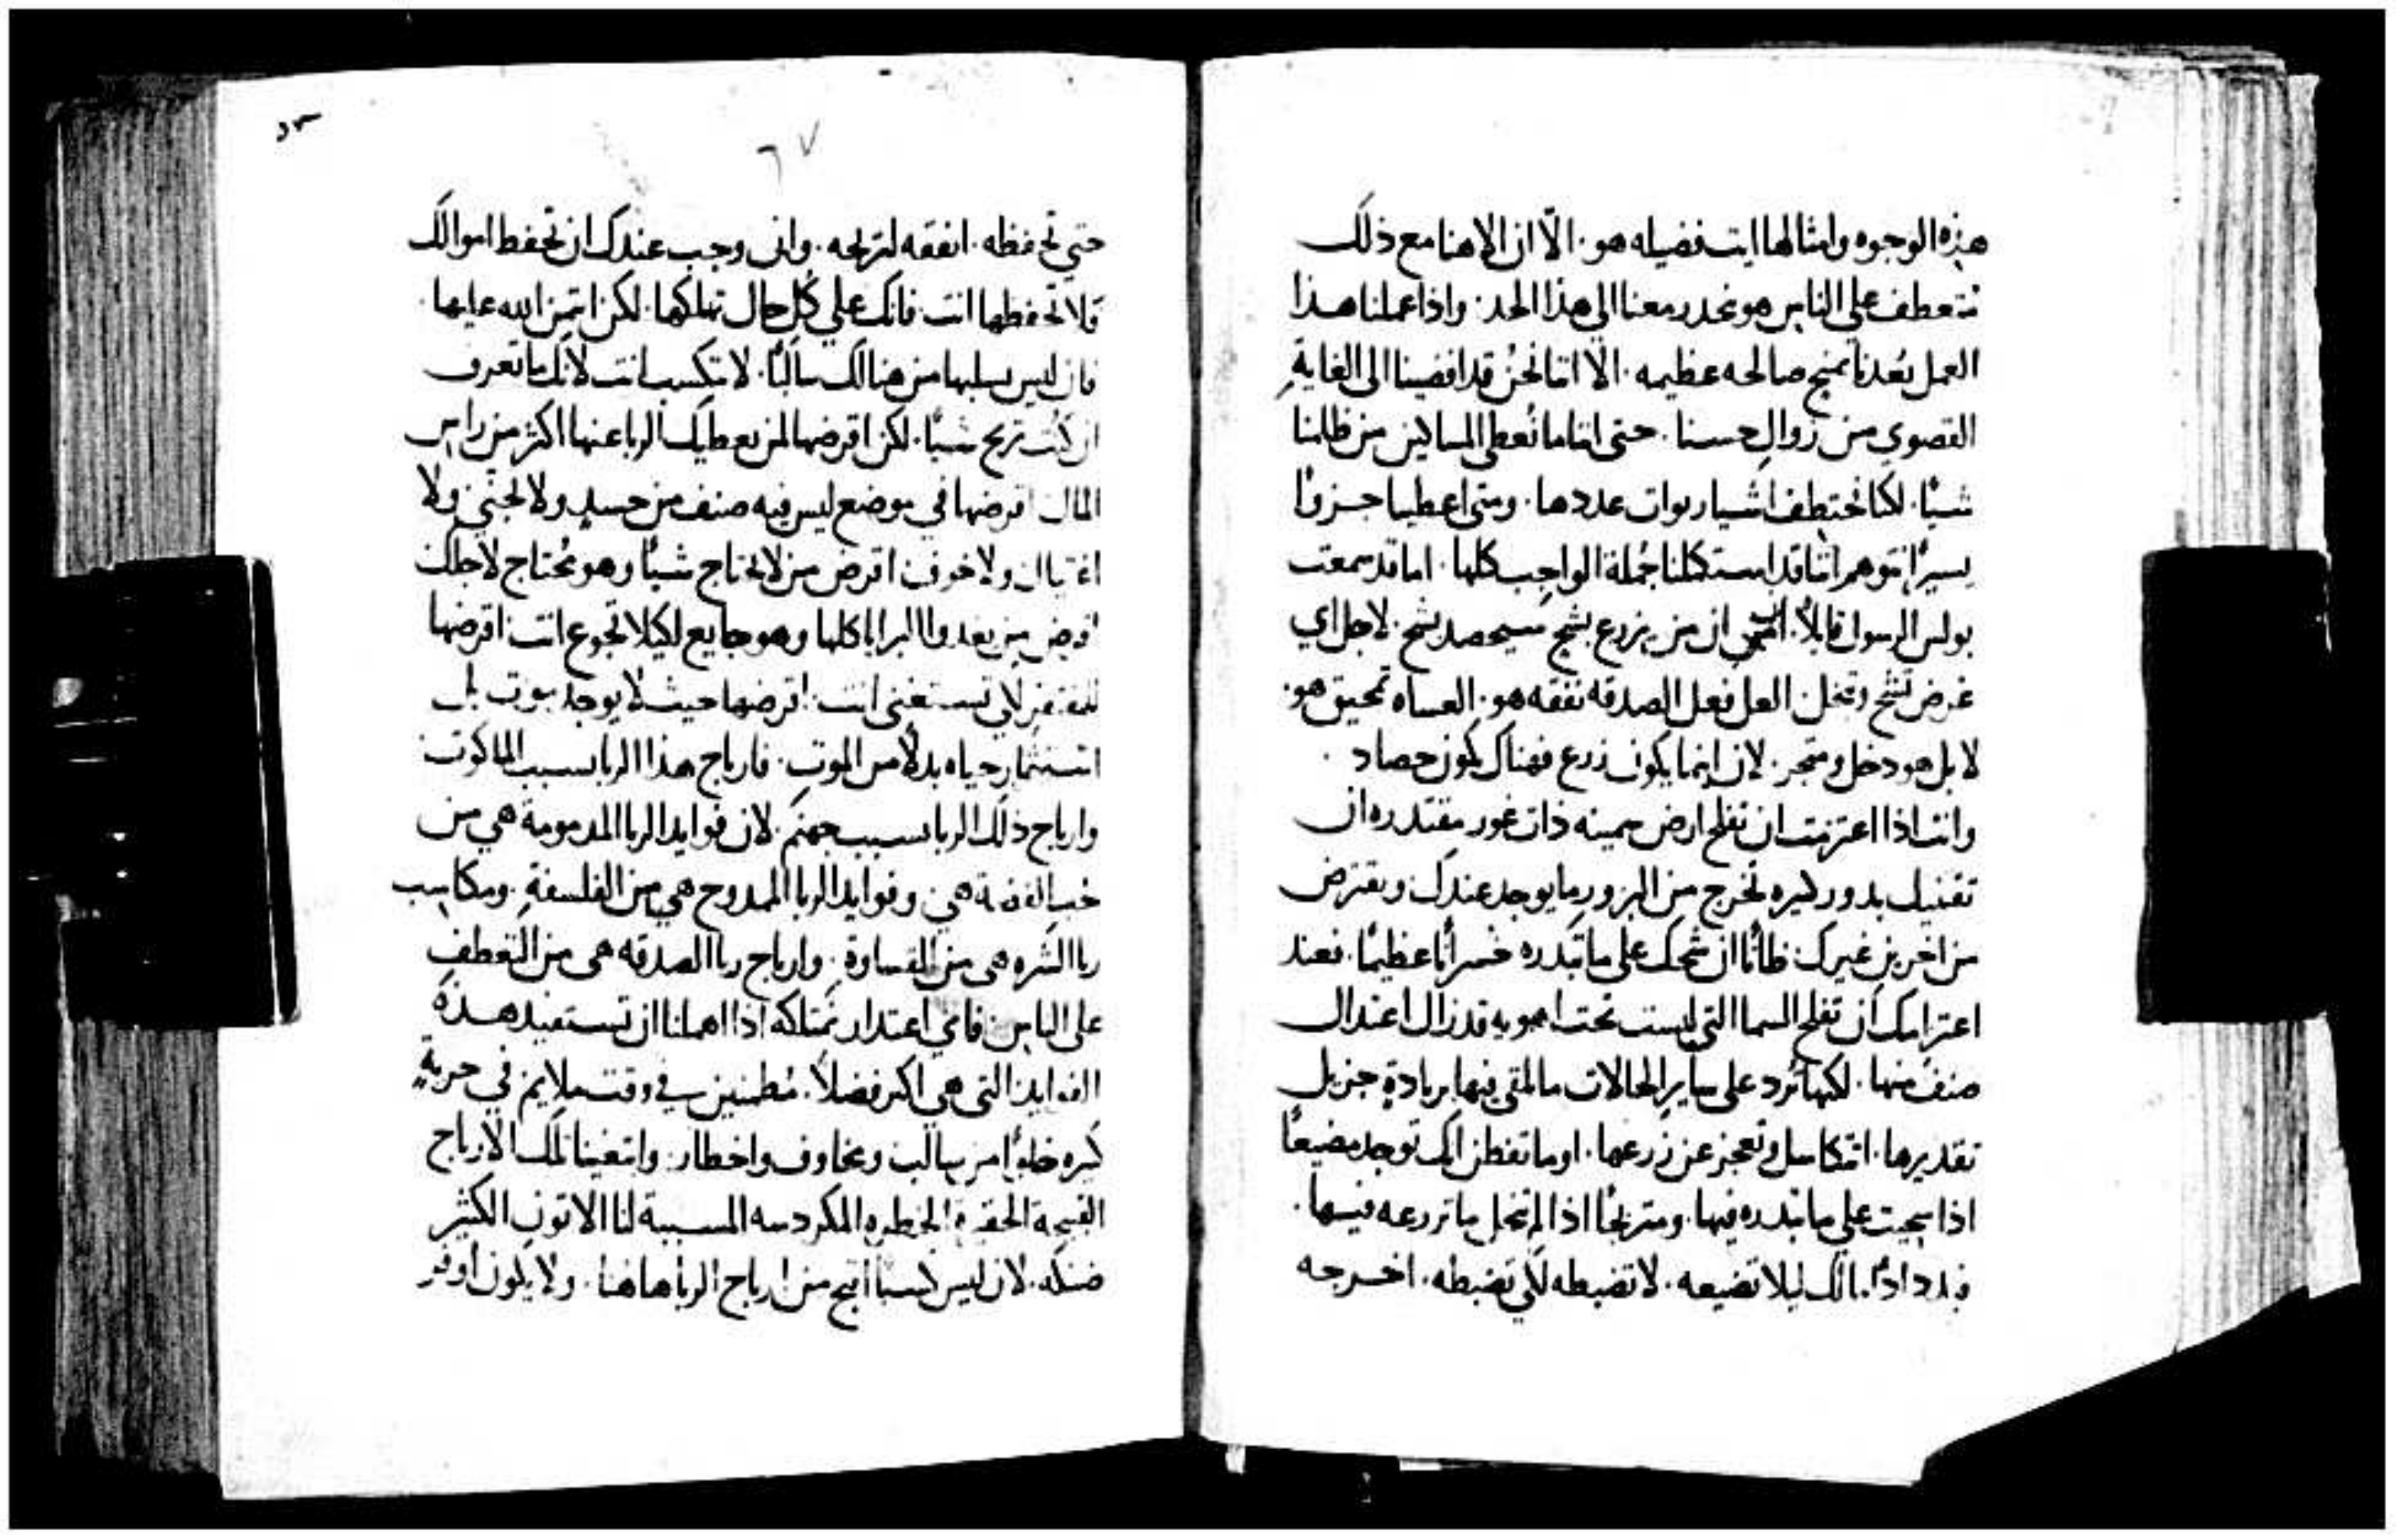 هذه الوجوه وامثالها ايت فضيله هو. الّا ان الاهنا مع ذلك
تتعطف علي الناس هو نحدر معنا الي هذا الحد. واذا عملنا هذا
العمل بعدنا نمنح صالحه عظيمه. الا اننا نحن قد افضينا الى الغاية
القصوي من زوال حسنا. حتى اننا ما نعطي المساكين من ظلمنا
شيًا. لكنا نختطف اشيا ربوات عددها. ومتى اعطينا جزوًا
يسيرًا نتوهم اننا قد استكملنا جُملة الواجب كلها. اما قد سمعت
بولس الرسول قايلاً. ان من يزرع بشح سيحصد بشح. لاجل اي
غرض تشح وتبخل. العل فعل الصدقه نفقه هو. العساه تمحيق هو.
لا بل هو دخل ومتجر. لان اينما يكون زرع فهناك يكون حصاد.
وانت اذا اعتزمت ان تفلح ارض سمينه ذات غور مقتدره ان
تقتبل بدور كثيره تخرج من البزور ما يوجد عندك وتقترض
من اخرين غيرك. ظانًا ان شحك على ما تبدره خسرانًا عظيمًا. فعند
اعتزامك ان تفلح السما التي ليست تحت اهويه قد زال اعتدال
صنف منها. لكنها تُرد على ساير الحالات ما القي فيها بزيادة جزيل
تقديرها. اتتكاسل وتعجز عن زرعها. اوما تفطن انك توجد مضيعًا
اذا شحيت علي ما تبدره فيها. ومتربحًا اذا لم تبخل بما تزرعه فيها.
فبدد اذًا مالك ليلا تضيعه. لا تضبطه لكي تضبطه. اخرجه
٥٣
٦٧
حتي تحفظه. انفقه لتربحه. واني وجب عندك ان تحفظ اموالك
فلا تحفظها انت. فانك علي كل حال تهلكها. لكن ائتمن الله عليها.
فان ليس يسلبها من هنالك سالبًا. لا تكسب انت لانك ما تعرف
ان كنت تربح شيًا. لكن اقرضها لمن يعطيك الربا عنها اكثر من راس
المال. اقرضها في موضع ليس فيه صنف من حسد ولا تجني ولا
اغتيال ولا خوف. اقرض من لا يحتاج شيًا وهو محتاج لاجلك
اقرض من يغدوا البرايا كلها وهو جايع لكيلا تجوع انت. اقرضها
للمفتقر لكي تستغني انت. اقرضها حيث لا يوجد موت بل
استثمار حياه بدلاً من الموت. فارباح هذا الربا بسبب الملكوت
وارباح ذلك الربا بسبب جهنم. لان فوايد الربا المدمومة هي من
حب الفضة هي. وفوايد الربا الممدوح هي من الفلسفة. ومكاسب
ربا الشره هي من القساوة. وارباح ربا الصدقه هي من التعطف
على الناس. فاي اعتدار نمتلكه اذا اهملنا ان نستفيد هذه
الفوايد التي هي اكثر فضلاً. مُطمنين في وقت ملايم في حرية
كثيره خلوًا من سالب ومخاوف واخطار. وابتغينا تلك الارباح
القبيحة الحقيرة الخطره المكردسه المسببة لنا الاتون الكثير
ضنكه. لان ليس كسبًا اقبح من ارباح الربا هاهنا. ولا يكون اوفر